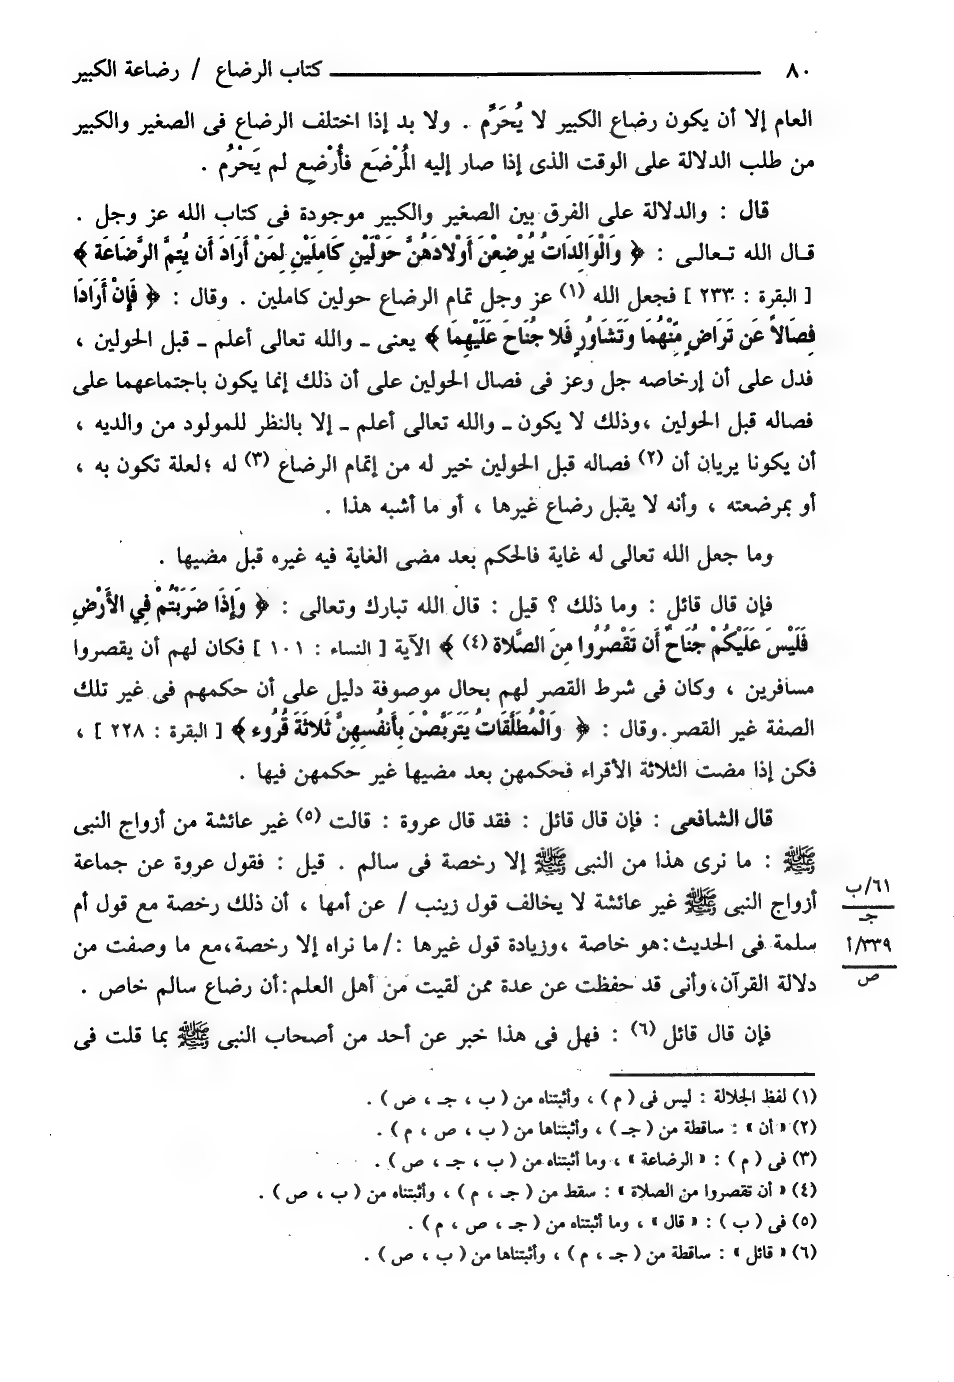 ٨٠ ــــــــــــــــــــ كتاب الرضاع / رضاعة الكبير
العام إلا أن يكون رضاع الكبير لا يُحَرِّم . ولا بد إذا اختلف الرضاع فى الصغير والكبير
من طلب الدلالة على الوقت الذى إذا صار إليه الْمُرْضَع فأُرْضِع لم يَحْرُم .
قال : والدلالة على الفرق بين الصغير والكبير موجودة فى كتاب الله عز وجل .
قال الله تعالى : ﴿ وَالْوَالِدَاتُ يُرْضِعْنَ أَوْلَادَهُنَّ حَوْلَيْنِ كَامِلَيْنِ لِمَنْ أَرَادَ أَن يُتِمَّ الرَّضَاعَة ﴾
[ البقرة : ٢٣٣ ] فجعل الله (١) عز وجل تمام الرضاع حولين كاملين . وقال : ﴿ فَإِنْ أَرَادَا
فِصَالاً عَن تَرَاضٍ مِّنْهُمَا وَتَشَاوُرٍ فَلا جُنَاحَ عَلَيْهِمَا ﴾ يعنى ــ والله تعالى أعلم ــ قبل الحولين ،
فدل على أن إرخاصه جل وعز فى فصال الحولين على أن ذلك إنما يكون باجتماعهما على
فصاله قبل الحولين ، وذلك لا يكون ــ والله تعالى أعلم ــ إلا بالنظر للمولود من والديه ،
أن يكونا يريان أن (٢) فصاله قبل الحولين خير له من إتمام الرضاع (٣) له ؛ لعلة تكون به ،
أو بمرضعته ، وأنه لا يقبل رضاع غيرها ، أو ما أشبه هذا .
وما جعل الله تعالى له غاية فالحكم بعد مضى الغاية فيه غيره قبل مضيها .
فإن قال قائل : وما ذلك ؟ قيل : قال الله تبارك وتعالى : ﴿ وَإِذَا ضَرَبْتُمْ فِي الأَرْضِ
فَلَيْسَ عَلَيْكُمْ جُنَاحٌ أَن تَقْصُرُوا مِنَ الصَّلَاة (٤) ﴾ الآية [ النساء : ١٠١ ] فكان لهم أن يقصروا
مسافرين ، وكان فى شرط القصر لهم بحال موصوفة دليل على أن حكمهم فى غير تلك
الصفة غير القصر . وقال : ﴿ وَالْمُطَلَّقَاتُ يَتَرَبَّصْنَ بِأَنفُسِهِنَّ ثَلاثَةَ قُرُوء ﴾ [ البقرة : ٢٢٨ ] ،
فكن إذا مضت الثلاثة الأقراء فحكمهن بعد مضيها غير حكمهن فيها .
قال الشافعى : فإن قال قائل : فقد قال عروة : قالت (٥) غير عائشة من أزواج النبى
ﷺ : ما نرى هذا من النبى ﷺ إلا رخصة فى سالم . قيل : فقول عروة عن جماعة
أزواج النبى ﷺ غير عائشة لا يخالف قول زينب / عن أمها ، أن ذلك رخصة مع قول أم
سلمة فى الحديث : هو خاصة ، وزيادة قول غيرها : / ما نراه إلا رخصة ، مع ما وصفت من
دلالة القرآن ، وأنى قد حفظت عن عدة ممن لقيت من أهل العلم : أن رضاع سالم خاص .
فإن قال قائل (٦) : فهل فى هذا خبر عن أحد من أصحاب النبى ﷺ بما قلت فى
٦١/ب
جـ
٣٣٩/أ
ص
(١) لفظ الجلالة : ليس فى ( م ) ، وأثبتناه من ( ب ، جـ ، ص ) .
(٢) « أن » : ساقطة من ( جـ ) ، وأثبتناها من ( ب ، ص ، م ) .
(٣) فى ( م ) : « الرضاعة » ، وما أثبتناه من ( ب ، جـ ، ص ) .
(٤) « أن تقصروا من الصلاة » : سقط من ( جـ ، م ) ، وأثبتناه من ( ب ، ص ) .
(٥) فى ( ب ) : « قال » ، وما أثبتناه من ( جـ ، ص ، م ) .
(٦) « قائل » : ساقطة من ( جـ ، م ) ، وأثبتناها من ( ب ، ص ) .